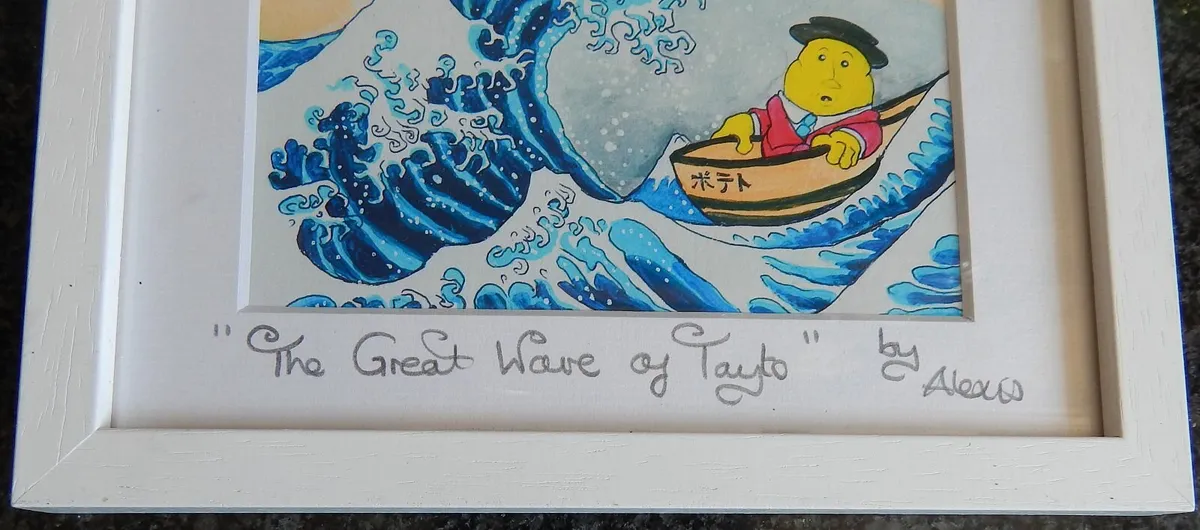 ポテト
"The Great Wave of Tayto" by
Alexis